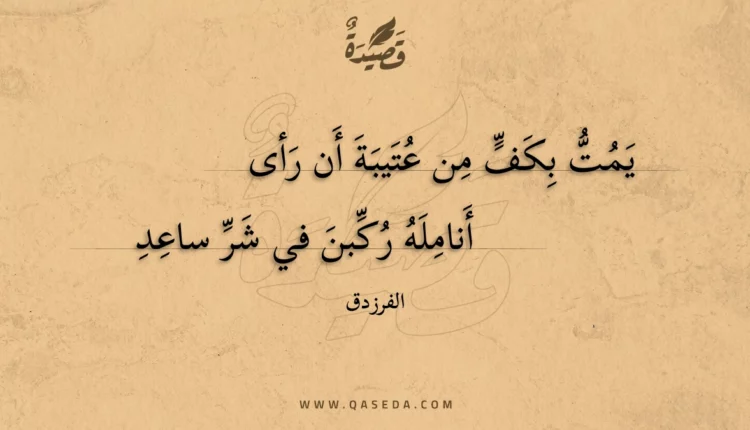 قَصِيدَةٌ
يَمُتُّ بِكَفٍّ مِن عُتَيبَةَ أَن رَأى
أَنامِلَهُ رُكِّبنَ في شَرِّ ساعِدِ
الفرزدق
WWW.QASEDA.COM